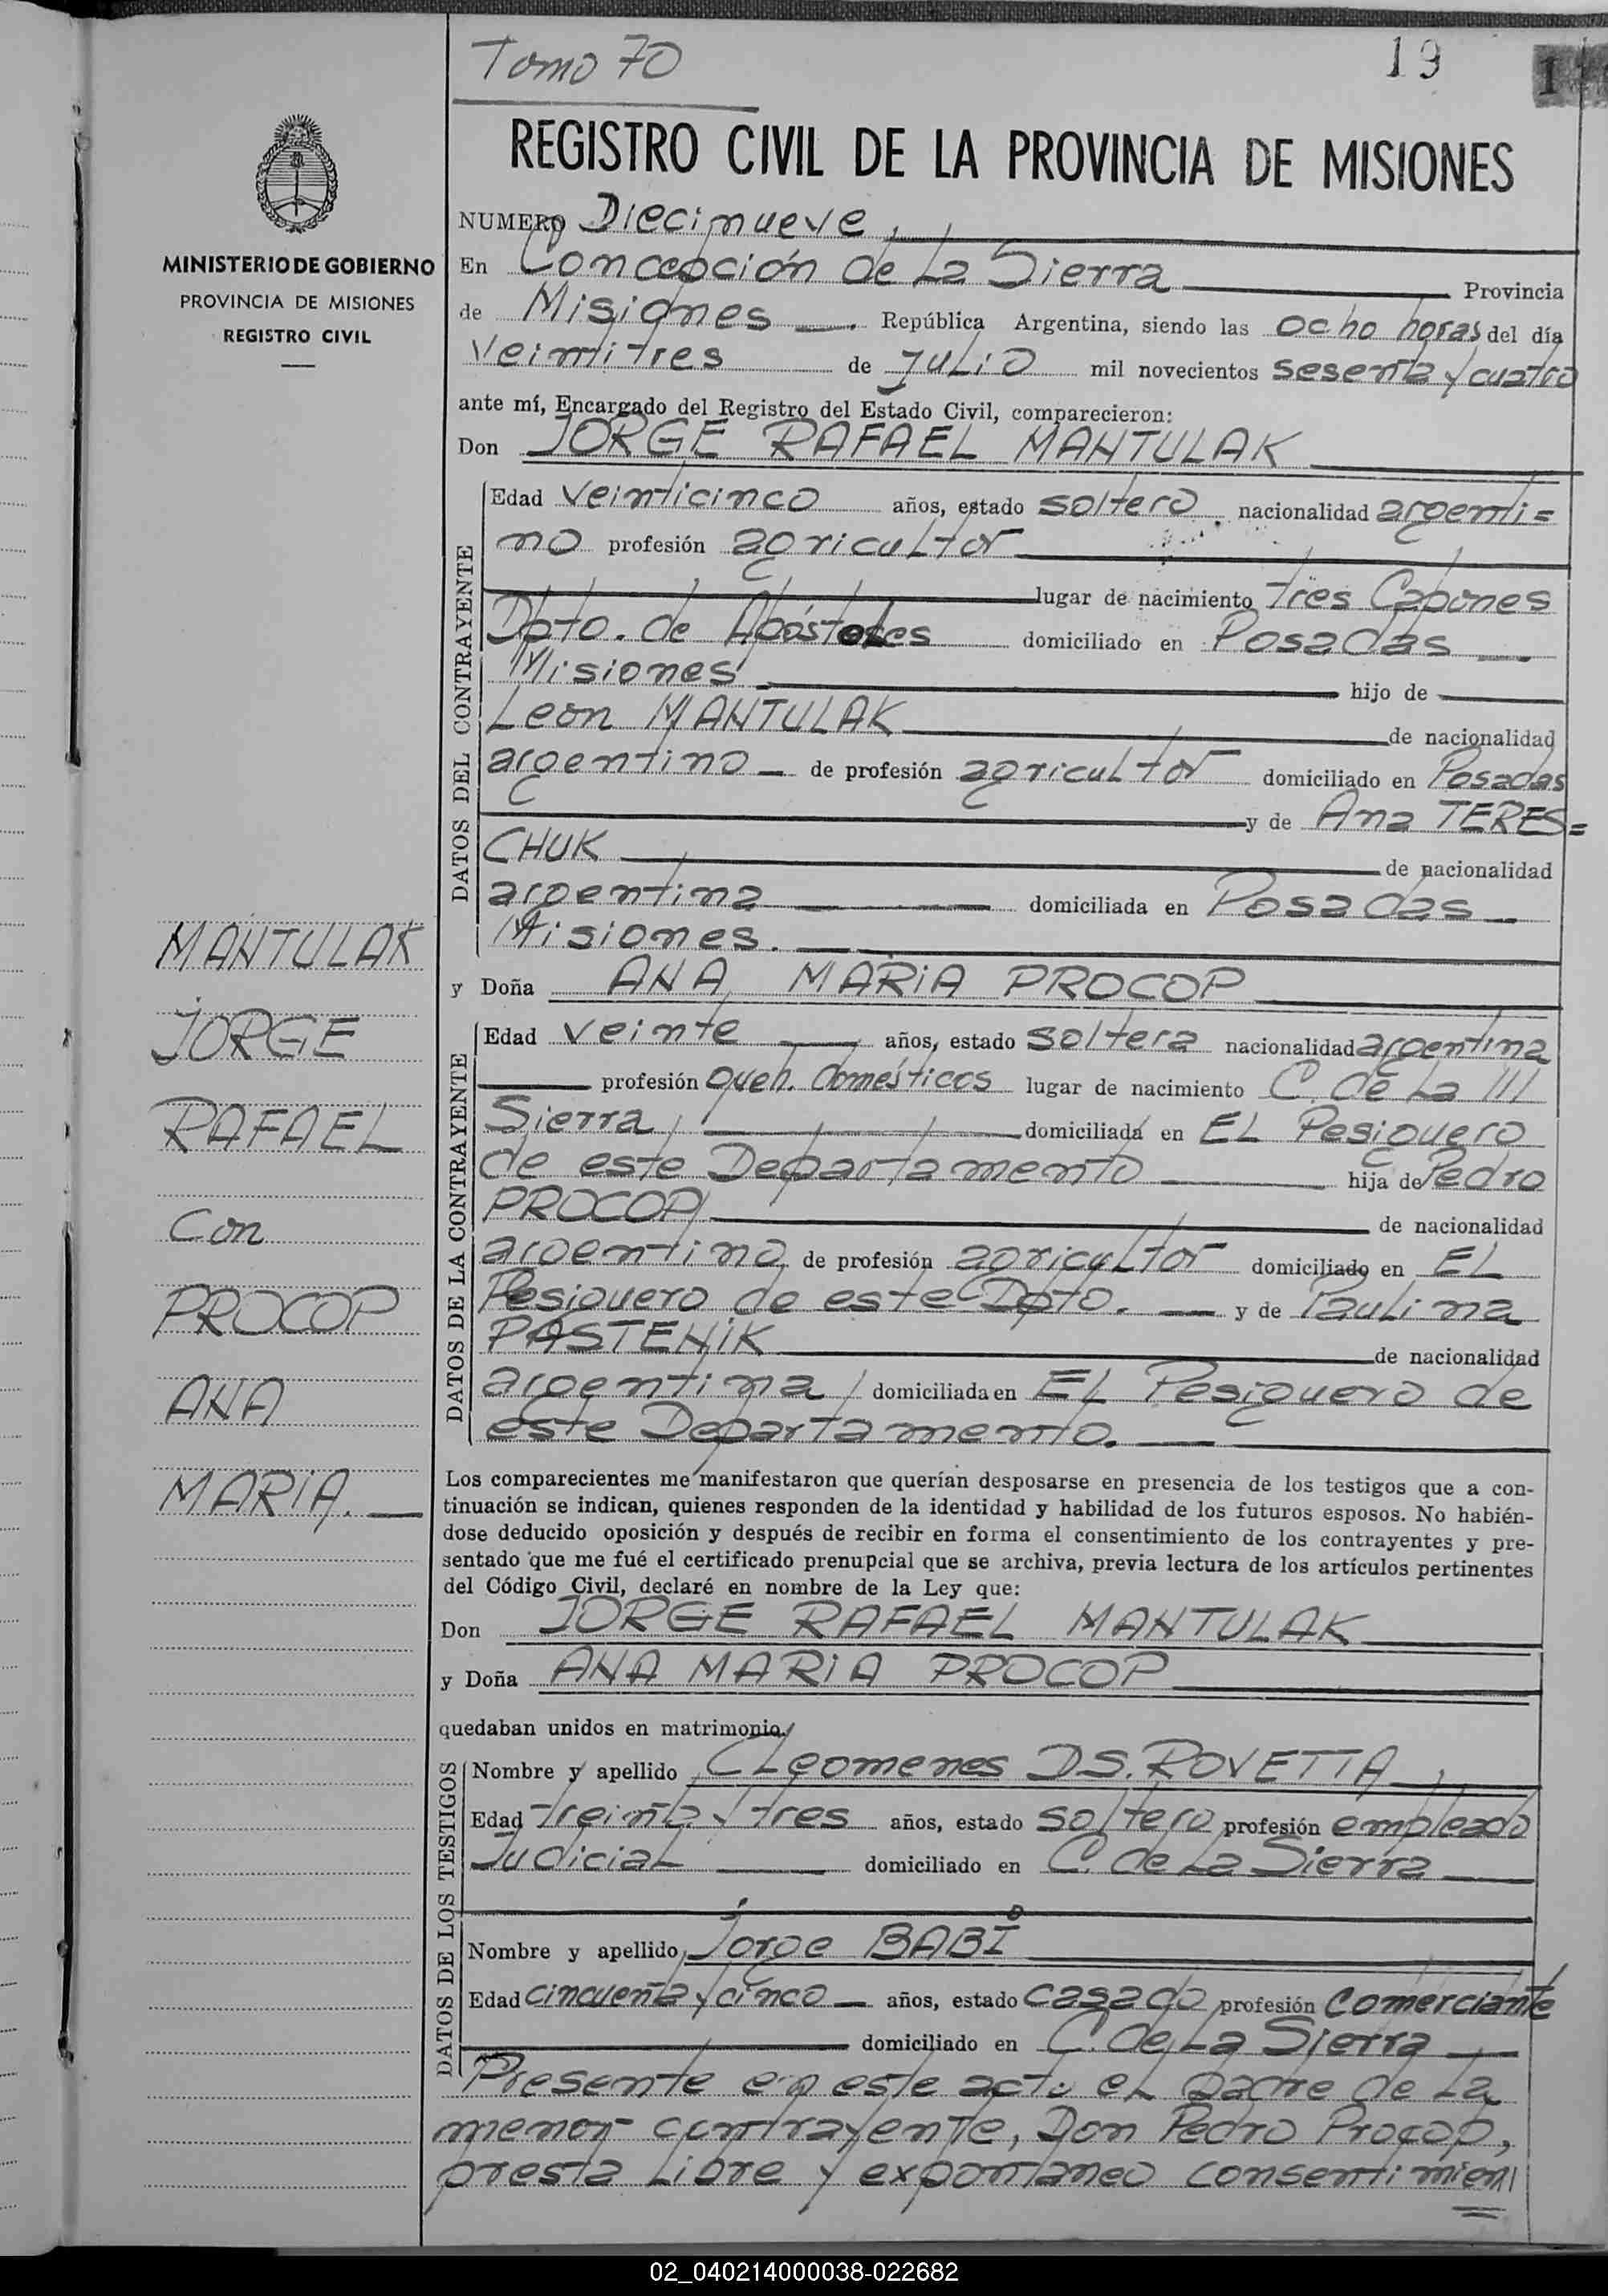 Tomo 70
19
1
REGISTRO CIVIL DE LA PROVINCIA DE MISIONES
MINISTERIO DE GOBIERNO
PROVINCIA DE MISIONES
REGISTRO CIVIL
NUMERO Diecinueve,
En Concepción de La Sierra Provincia
de Misiones. República Argentina, siendo las ocho horas del día
Veintitres de Julio mil novecientos sesenta y cuatro
ante mí, Encargado del Registro del Estado Civil, comparecieron:
Don JORGE RAFAEL MANTULAK
DATOS DEL CONTRAYENTE
Edad veinticinco años, estado soltero nacionalidad argenti=
no profesión agricultor
lugar de nacimiento Tres Capones
Dpto. de Apóstoles domiciliado en Posadas
Misiones hijo de
Leon MANTULAK de nacionalidad
argentino de profesión agricultor domiciliado en Posadas
y de Ana TERES=
CHUK de nacionalidad
argentina domiciliada en Posadas
Misiones.
y Doña ANA MARIA PROCOP
DATOS DE LA CONTRAYENTE
Edad veinte años, estado soltera nacionalidad argentina
profesión queh. domésticos lugar de nacimiento C. de La
Sierra domiciliada en EL Pesiguero
de este Departamento hija de Pedro
PROCOP de nacionalidad
argentino de profesión agricultor domiciliado en EL
Pesiguero de este Dpto. y de Paulina
PASTENIK de nacionalidad
argentina domiciliada en EL Pesiguero de
este Departamento.
MANTULAK
JORGE
RAFAEL
Con
PROCOP
ANA
MARIA.
Los comparecientes me manifestaron que querían desposarse en presencia de los testigos que a con-
tinuación se indican, quienes responden de la identidad y habilidad de los futuros esposos. No habién-
dose deducido oposición y después de recibir en forma el consentimiento de los contrayentes y pre-
sentado que me fué el certificado prenupcial que se archiva, previa lectura de los artículos pertinentes
del Código Civil, declaré en nombre de la Ley que:
Don JORGE RAFAEL MANTULAK
y Doña ANA MARIA PROCOP
quedaban unidos en matrimonio.
DATOS DE LOS TESTIGOS
Nombre y apellido CLeomenes D.S. ROVETTA,
Edad treinta y tres años, estado soltero profesión empleado
Judicial domiciliado en C. de La Sierra
Nombre y apellido Jorge BABI
Edad cincuenta y cinco años, estado casado profesión comerciante
domiciliado en C. de La Sierra
Presente en este acto el padre de La
menor contrayente, Don Pedro Procop,
presta Libre y expontaneo consentimien
02_040214000038-022682